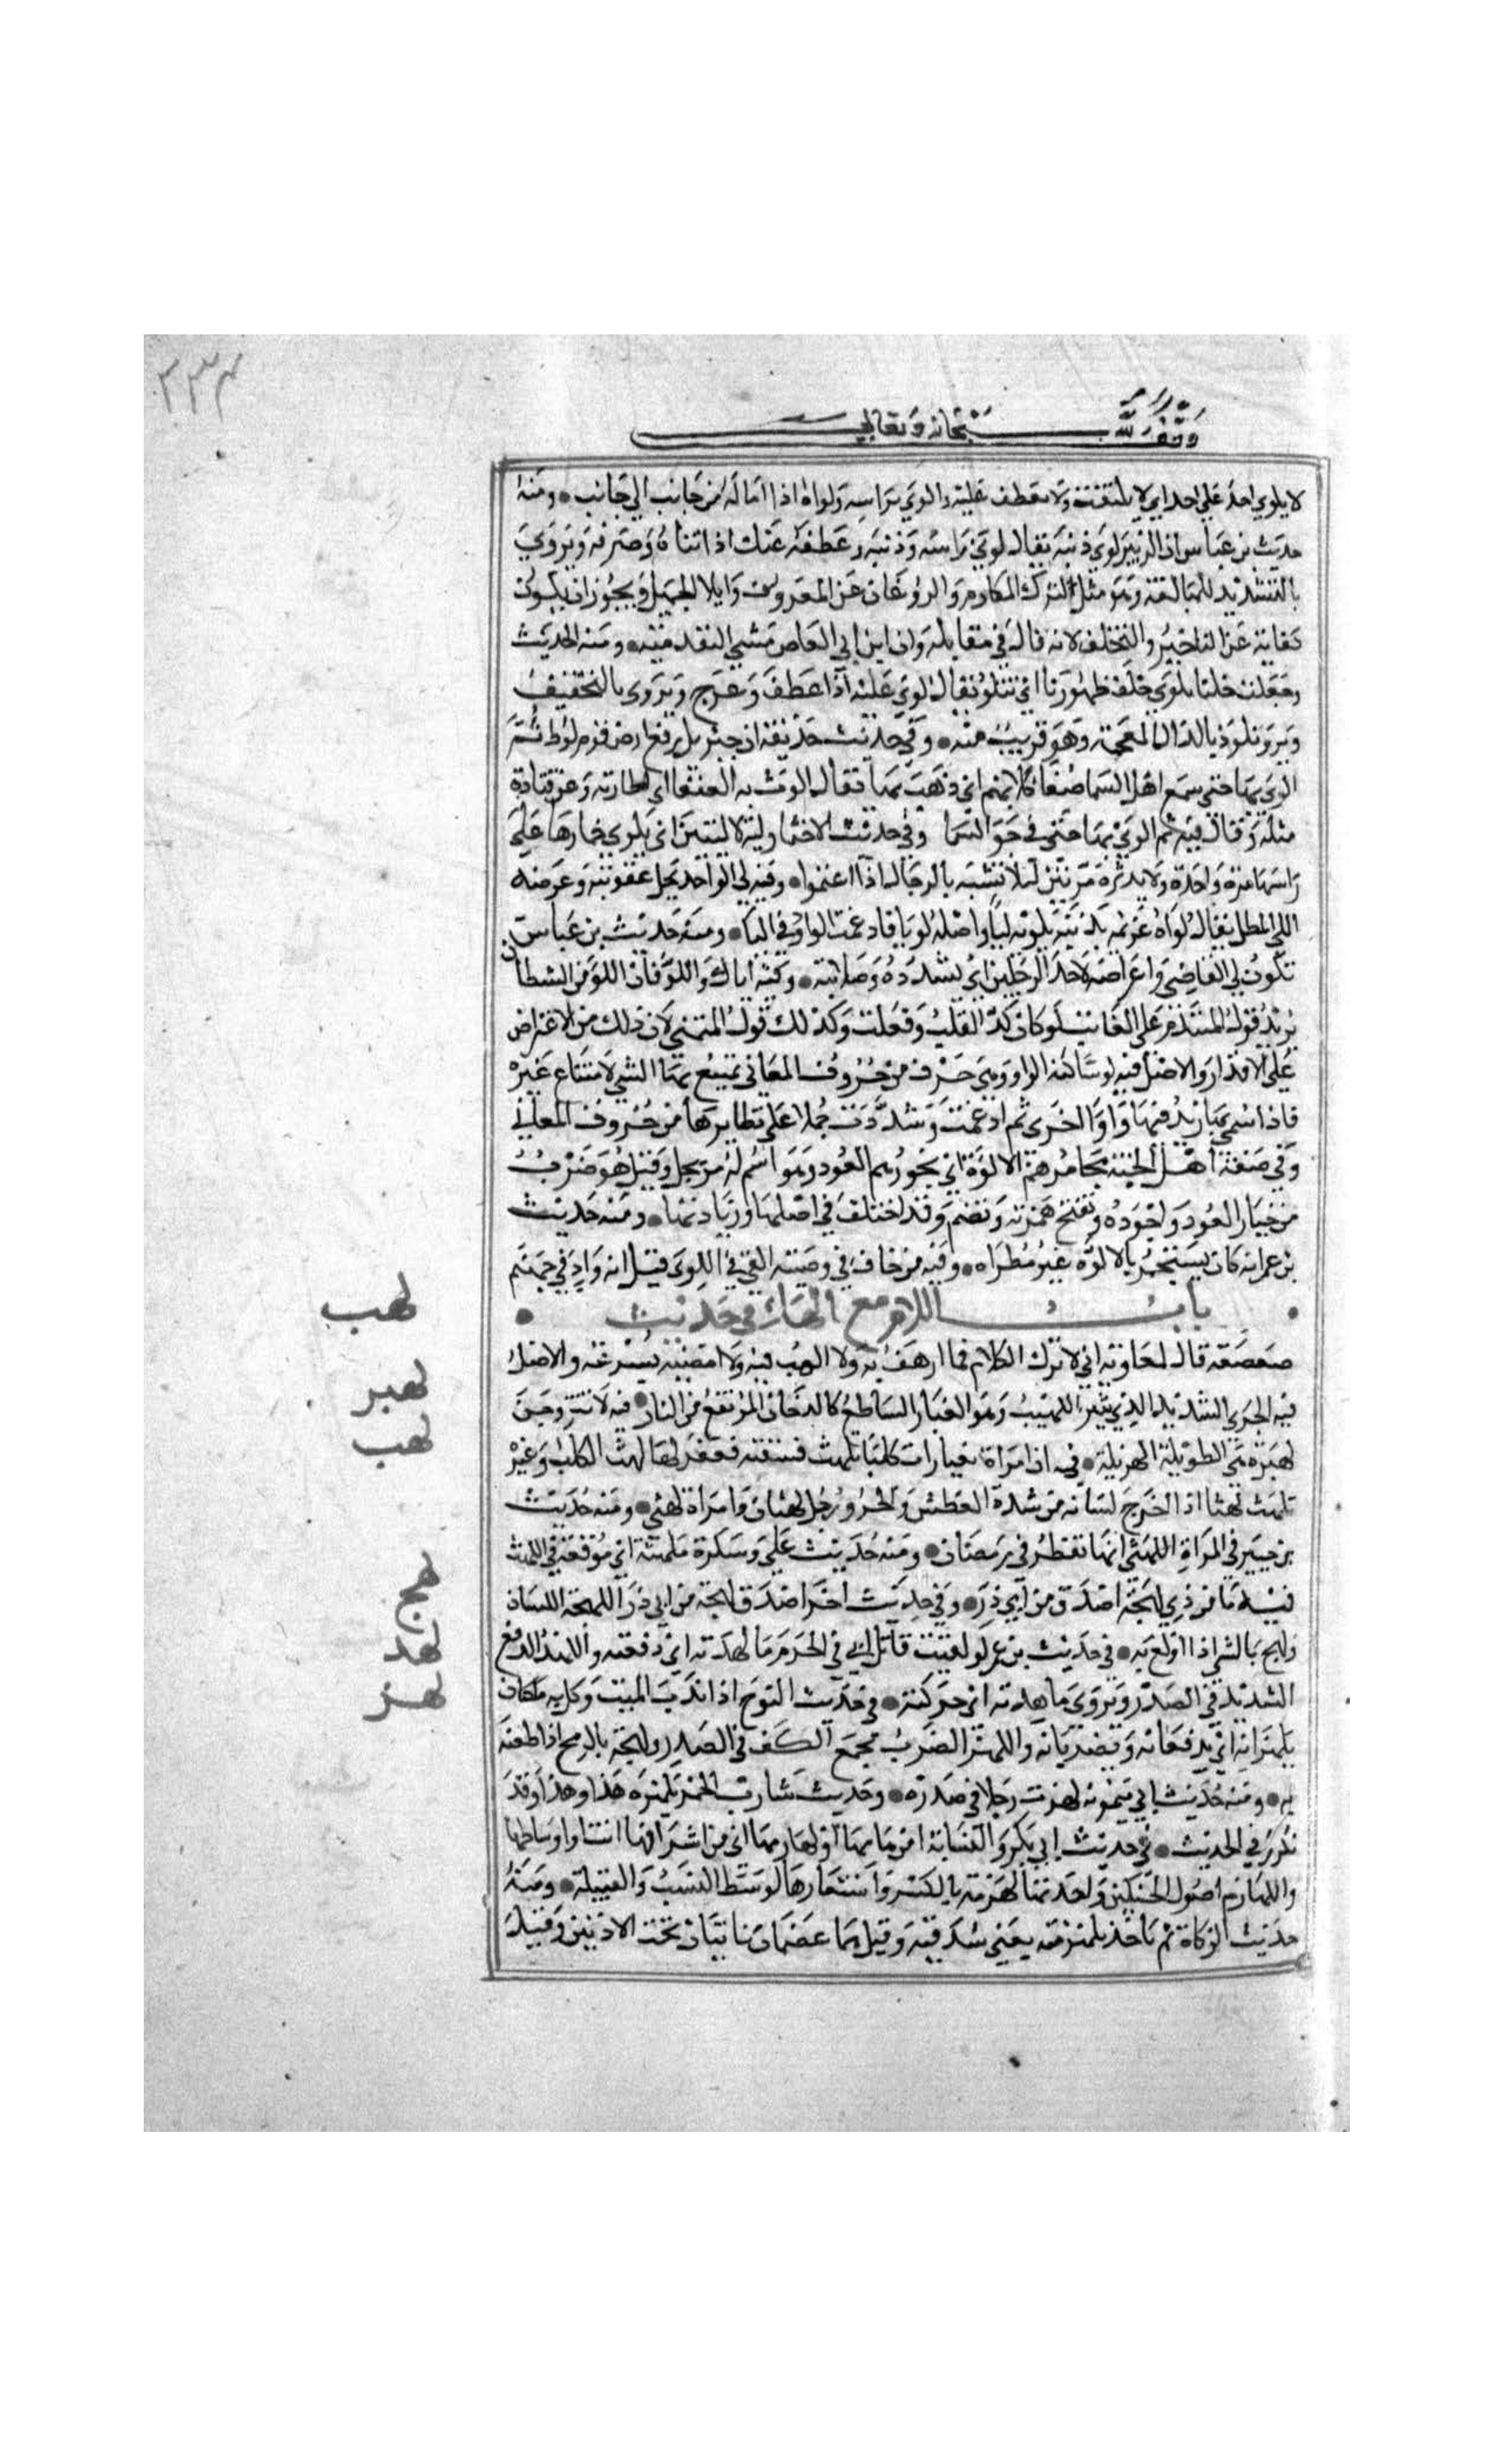 ٢٣٤
وقف لله سبحانه وتعالى
لا يلوي احد على احد اي لا يلتفت ولا يعطف عليه والوي براسه ولواه اذا اماله من جانب الي جانب • ومنه
حديث بن عباس ان الزبير لوي ذنبه يقال لوي راسه وذنبه وعطفه عنك اذا ثناه وصرفه ويروي
بالتشديد للمبالغة وهو مثل لترك المكارم والروغان عن المعروف وايلا الجميل ويجوز ان يكون
كناية عن التاخير والتخلف لانه قاله في مقابله وان ابن ابي العاص مشي التقدمية • ومنه الحديث
وجعلت خيلنا تلوي خلف ظهورنا اي تتلو يقال لوي عليه اذا عطف وعرج ويروي بالتخفيف
ويروي تلوذ بالذال المعجمة وهو قريب منه • وفي حديث حذيفة ان جبريل رفع ارض قوم لوط ثم
الوي بها حتي سمع اهل السما ضغا كلابهم اي ذهب بها يقال الوت به العنقا اي اطارته وعن قتادة
مثله وقال فيه ثم الوي بها حتي في جو السما وفي حديث الاختمار لية لا ليتين اي يلوي خمارها على
راسها مرة واحدة ولا يديره مرتين ليلا تتشبه بالرجال اذا اعتموا • وفيه لي الواجد يحل عقوبته وعرضه
اللي المطل يقال لواه غريمه بدينه يلويه ليا واصله لويا فادغمت الواو في اليا • ومنه حديث بن عباس
يكون لي القاضي واعراضه لاحد الرجلين اي تشدده وصلابته • وفيه اياك واللو فان اللو من الشيطان
يريد قول المتندم على الفايت لو كان كذا لقلت وفعلت وكذلك قول المتمني لان ذلك من الاعتراض
على الاقدار والاصل فيه لو ساكنة الواو وهي حرف من حروف المعاني يمتنع بها الشي لامتناع غيره
فاذا اسمي بها زيد فيها واوا اخرى ثم ادغمت وشددت حملا على نظايرها من حروف المعاني
وفي صفة اهل الجنة مجامرهم الالوة اي بخورهم العود وهو اسم له مرتجل وقيل هو ضرب
من خيار العود واجوده وتفتح همزته وتضم وقد اختلف في اصلها وزيادتها • ومنه حديث
بن عمر انه كان يستجمر بالالوه غير مطراه • وفيه من خاف في وصيته القي في اللوى قيل انه واد في جهنم
• باب اللام مع الهاء في حديث •
لهب
صعصعه قال لمعاوية اني لا ترك الكلام فما ارهف به ولا الهب فيه ولا امضيه بسرعة والاصل
لهبر
فيه الجري الشديد الذي يثير اللهيب وهو الغبار الساطع كالدخان المرتفع من النار • فيه لا تتزوجن
لهث
لهبرة هي الطويلة الهزيلة • فيه ان امراة بغيا رات كلبا يلهث فسقته فغفر لها لهث الكلب وغيره
يلهث لهثا اذا اخرج لسانه من شدة العطش والحر ورجل لهثان وامراة لهثي • ومنه حديث
بن جبير في المراة اللهثي انها تفطر في رمضان • ومنه حديث علي وسكرة ملهثة اي موقعة في اللهث
لهج
فيه ما من ذي لهجة اصدق من ابي ذر • وفي حديث اخر اصدق لهجة من ابي ذر اللهجة اللسان
لهد
ولهج بالشي اذا اولع به • في حديث بن عمر لو لقيت قاتل ابي في الحرم ما لهدته اي دفعته واللهد الدفع
لهز
الشديد في الصدر ويروي ما هدته اي حركته • في حديث النوح اذا ندب الميت وكل به ملكان
يلهزانه اي يدفعانه ويضربانه واللهز الضرب بجمع الكف في الصدر ولهزه بالرمح اذا طعنه
به • ومنه حديث ابي ميمونة لهزت رجلا في صدره • وحديث شارب الخمر يلهزه هذا وهذا وقد
تكرر في الحديث • في حديث ابي بكر والنسابة امن هامها او لهازمها اي من اشرافها انت او اوساطها
واللهازم اصول الحنكين واحدتها لهزمة بالكسر واستعارها لوسط النسب والقبيلة • ومنه
حديث الزكاة ثم ياخذ بلهزمته يعني شدقيه وقيل هما عظمان ناتيان تحت الاذنين وقيل